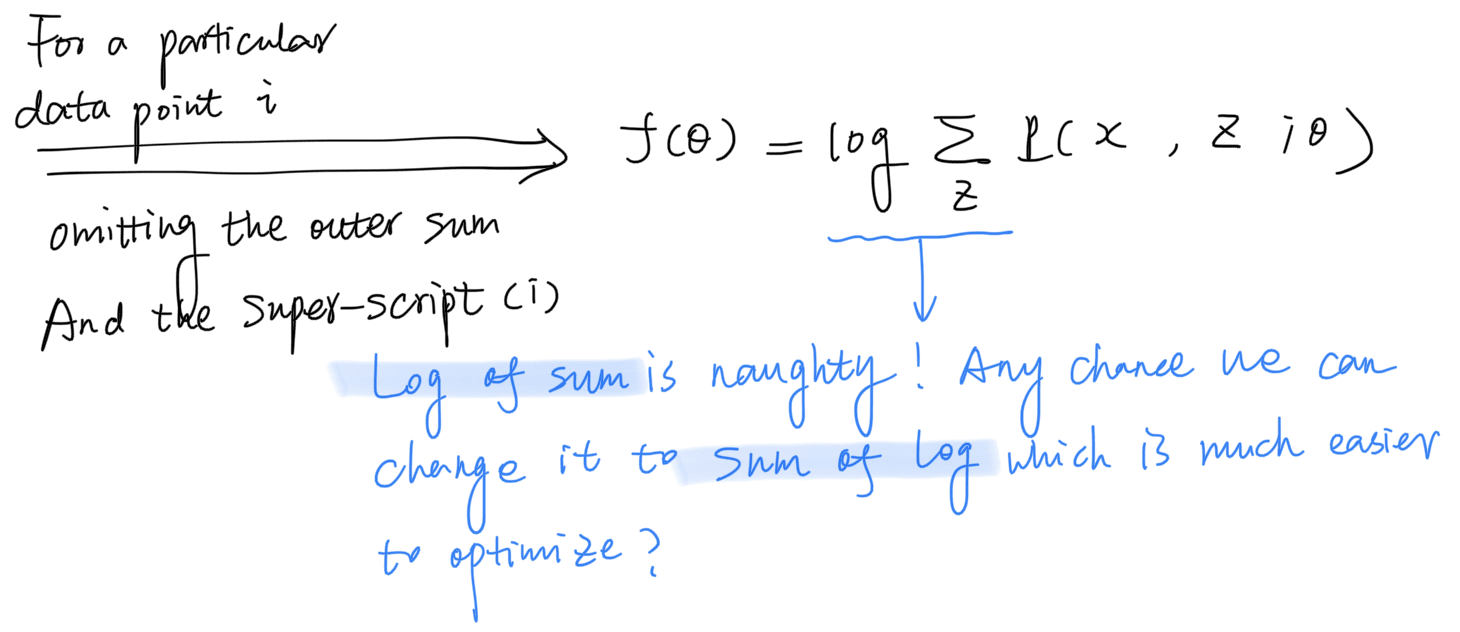 For a particular
data point i
f(θ) = log Σ P(x, z; θ)
z
omitting the outer sum
And the super-script (i)
Log of sum is naughty! Any chance we can
change it to sum of log which is much easier
to optimize?